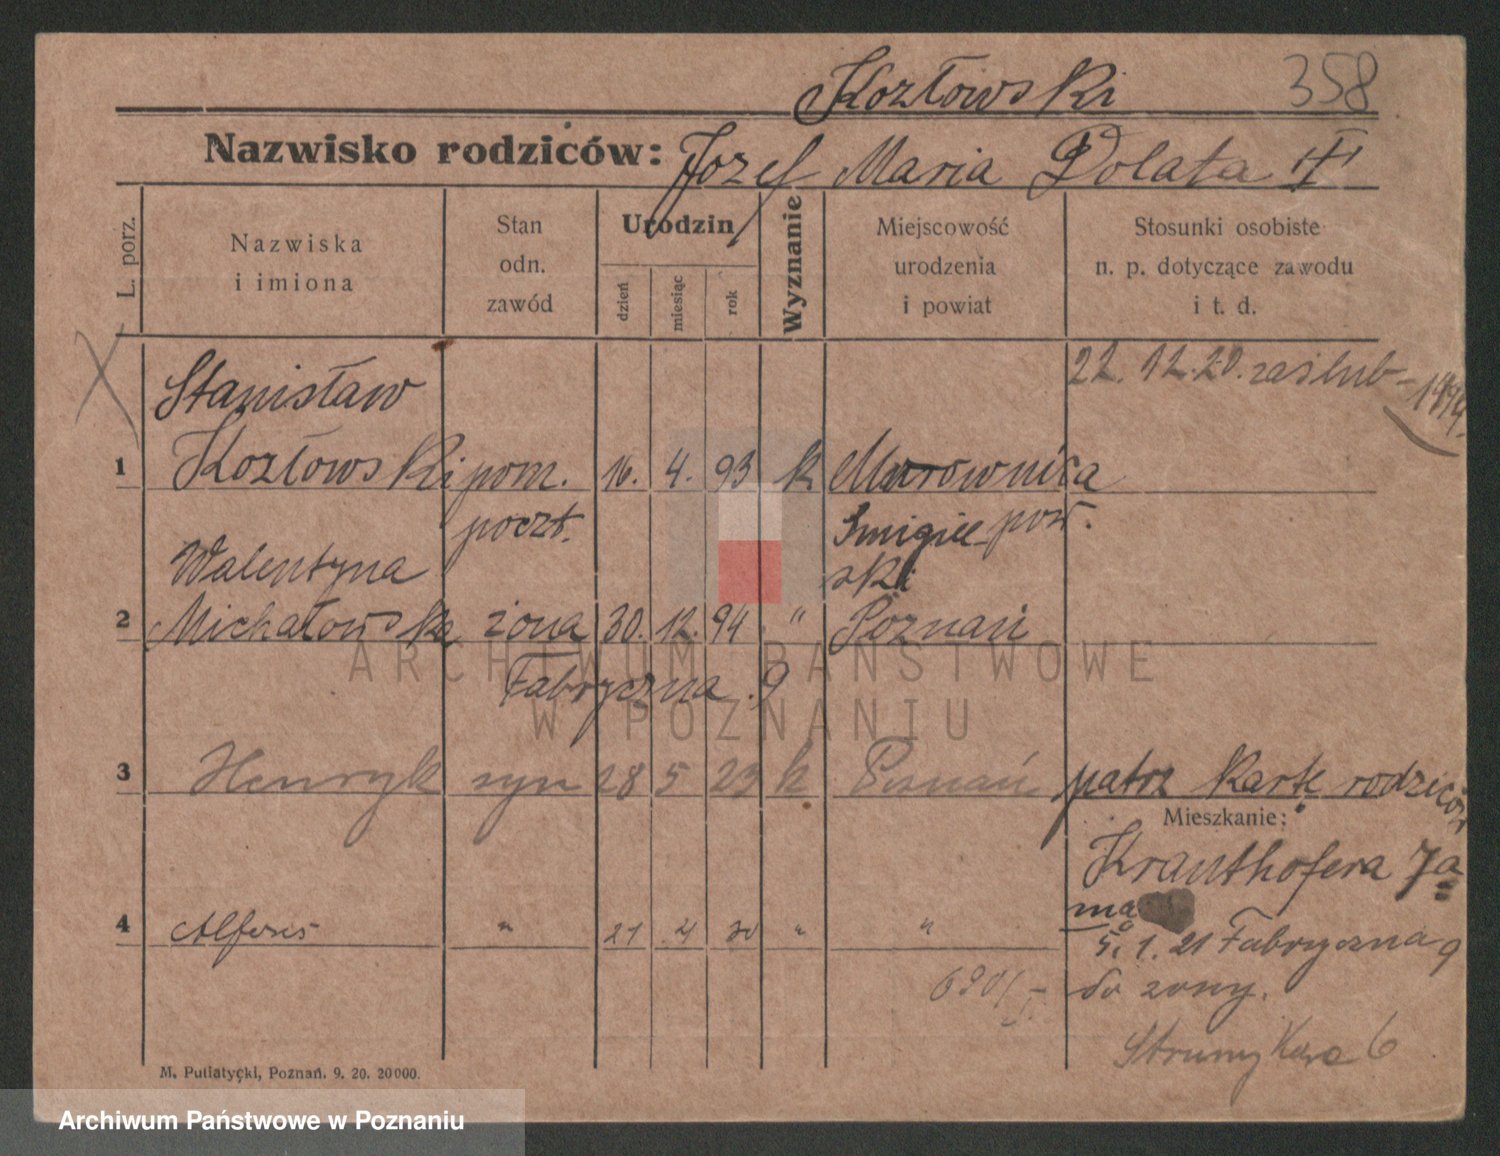 Kozłowski 358
Nazwisko rodziców: Józef Maria Polata
L. porz.
Nazwiska i imiona
Stan odn. zawód
Urodzin
dzień miesiąc rok
Wyznanie
Miejscowość urodzenia i powiat
Stosunki osobiste n. p. dotyczące zawodu i t. d.
22. 12. 20. zaślub
Stanisław
1 Kozłowski pom. 16. 4. 93 k Murownica
poczt. Śmigiel pow.
ski
Walentyna
2 Michałowska żona 30. 12. 94 " Poznań
Fabryczna 9
3 Henryk syn 28 5 23 k Poznań patrz Kartę rodziców
Mieszkanie:
Kranthofera 7a
4 Alfons " 21 4 30 " "
5. 1. 21 Fabryczna 9
do żony.
Strumykowa 6
M. Putiatycki, Poznań. 9. 20. 20000.
ARCHIWUM PAŃSTWOWE
W POZNANIU
Archiwum Państwowe w Poznaniu